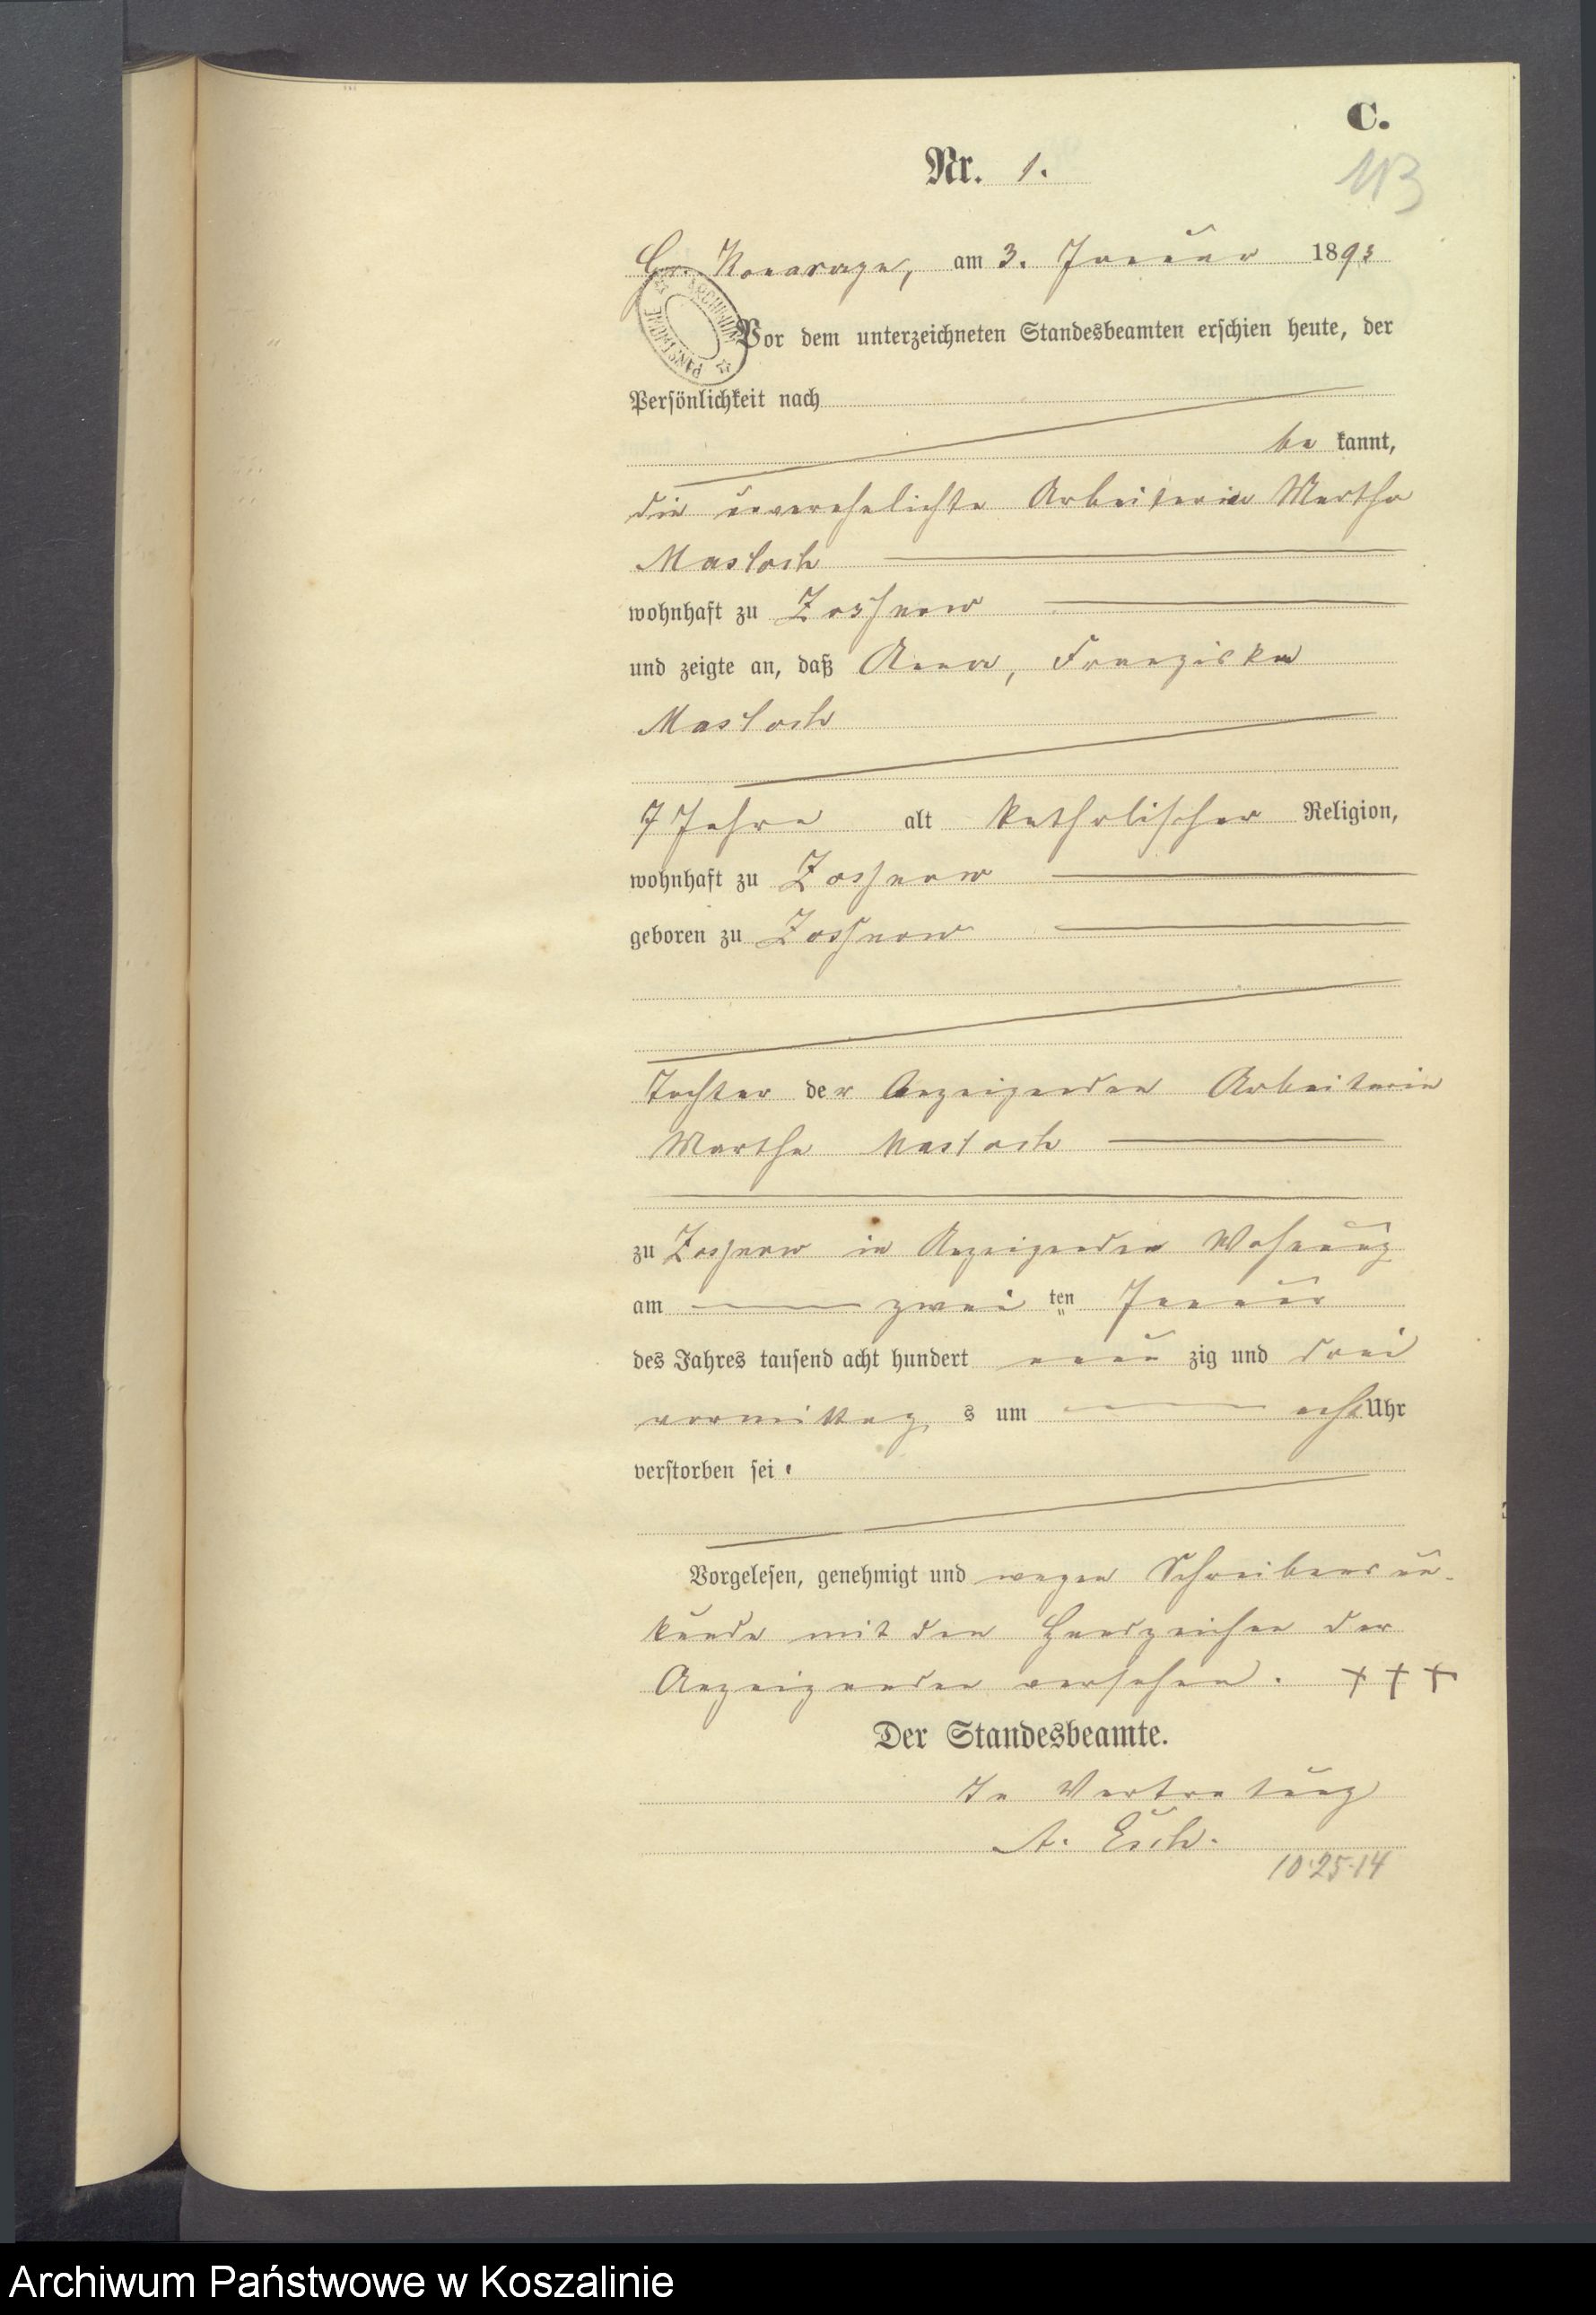 C.
Nr. 1.
113
Gr. Konarzyn, am 3. Januar 1893
ARCHIWUM PAŃSTWOWE
Vor dem unterzeichneten Standesbeamten erschien heute, der
Persönlichkeit nach
be kannt,
die unverehelichte Arbeiterin Martha
Mastoch
wohnhaft zu Zossnow
und zeigte an, daß Anna, Franziska
Mastoch
7 Jahre alt katholischer Religion,
wohnhaft zu Zossnow
geboren zu Zossnow
Tochter der Anzeigenden Arbeiterin
Martha Mastoch
zu Zossnow in Anzeigenden Wohnung
am zwei ten Januar
des Jahres tausend acht hundert neun zig und drei
vormittag s um acht Uhr
verstorben sei.
Vorgelesen, genehmigt und wegen Schreibensun-
kunde mit den Handzeichen der
Anzeigenden versehen. + + +
Der Standesbeamte.
In Vertretung
A. Esch.
10·25·14
Archiwum Państwowe w Koszalinie